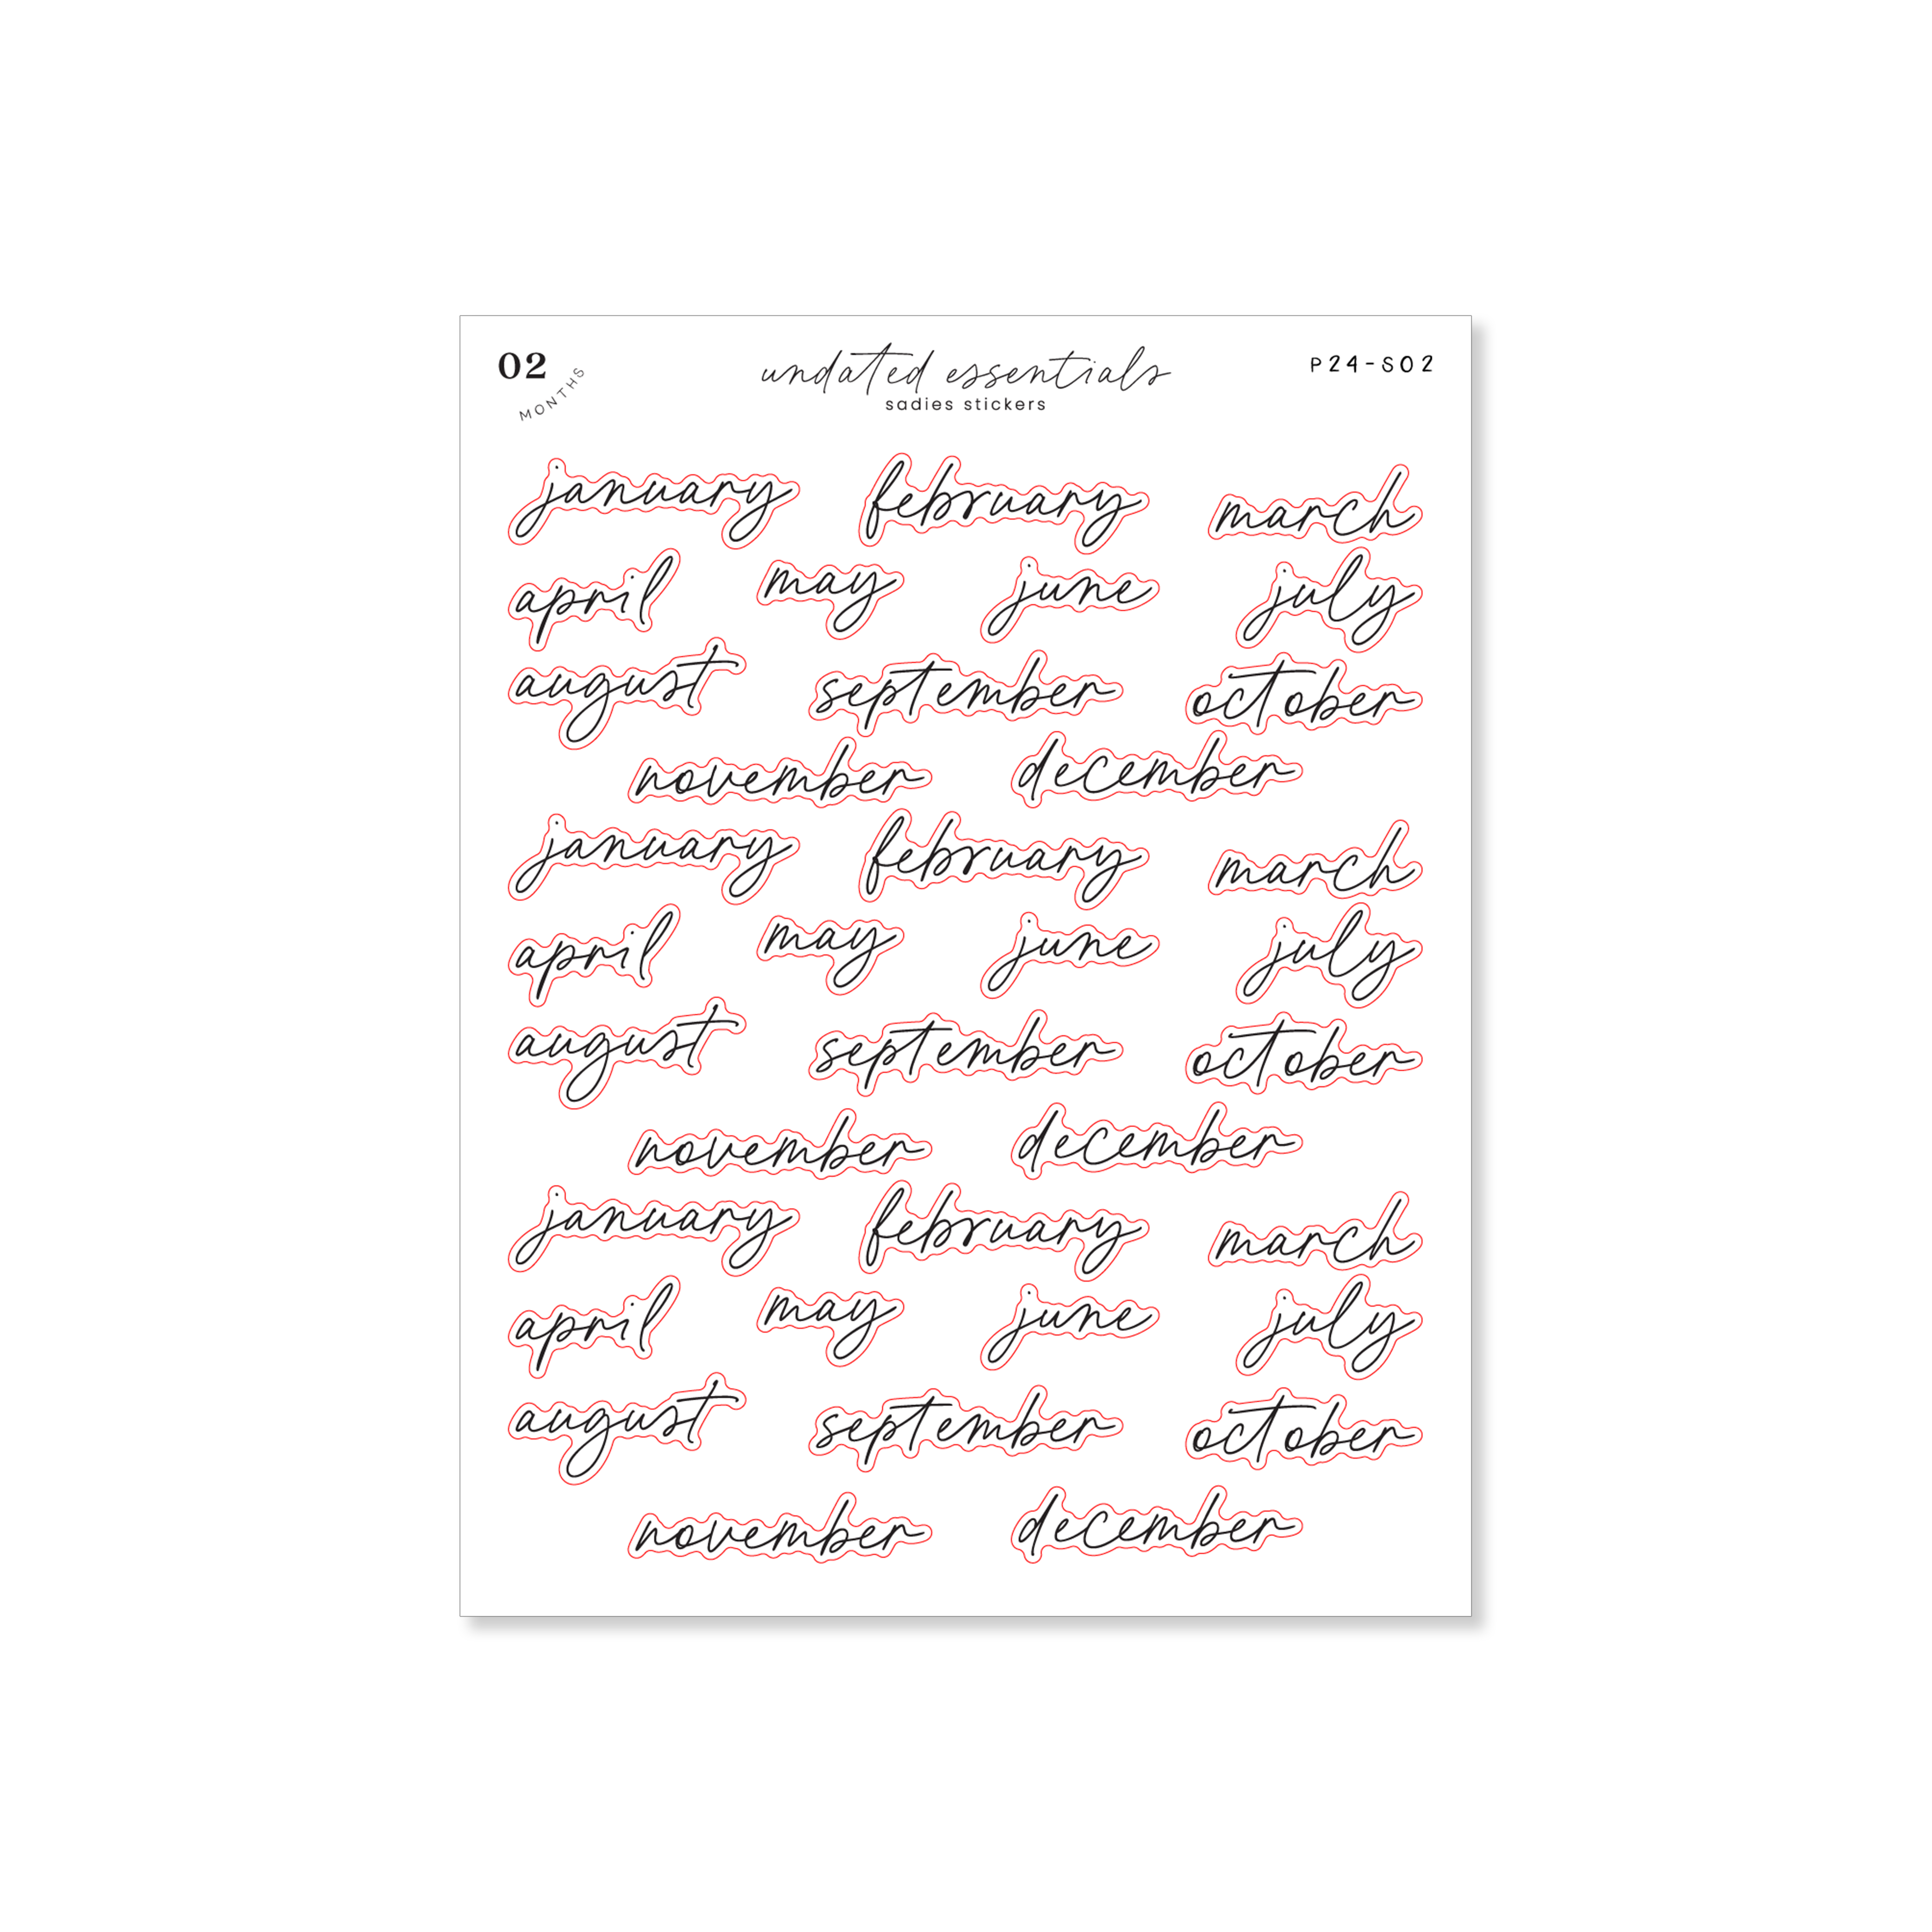 02
MONTHS
undated essentials
sadies stickers
P24-S02
january february march
april may june july
august september october
november december
january february march
april may june july
august september october
november december
january february march
april may june july
august september october
november december